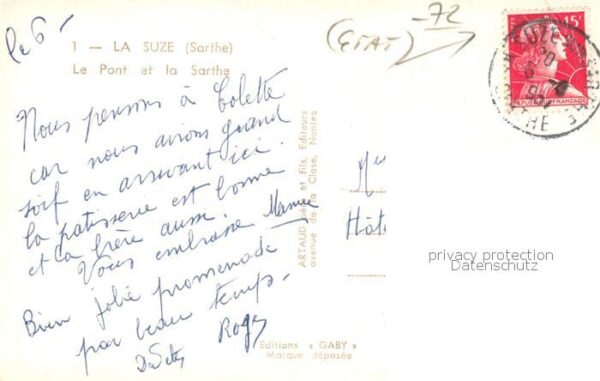 Le 6-
1 — LA SUZE (Sarthe)
Le Pont et la Sarthe
(ETAT) -72
Nous pensons à Colette
car nous avions grand
soif en arrivant ici.
la patisserie est bonne
et la bière aussi.
Vous embrasse Mamie
Bien jolie promenade
par beau temps.
Roger
ARTAUD père et fils, Editeurs
avenue de la Close, Nantes
Editions « GABY »
Marque déposée
15F
SUZE
SARTHE
Hôte
privacy protection
Datenschutz